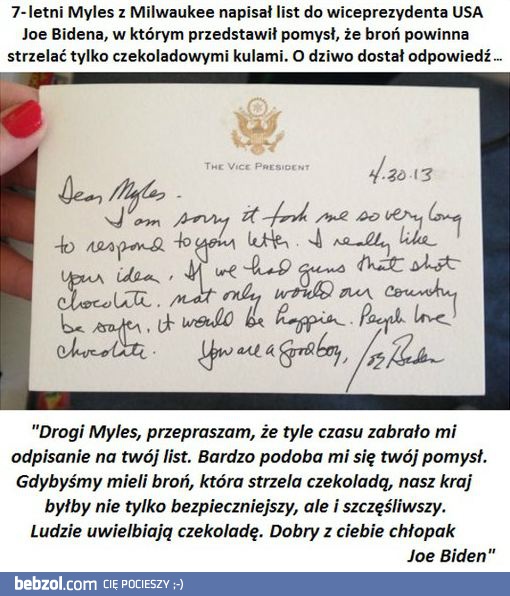 7-letni Myles z Milwaukee napisał list do wiceprezydenta USA
Joe Bidena, w którym przedstawił pomysł, że broń powinna
strzelać tylko czekoladowymi kulami. O dziwo dostał odpowiedź...
THE VICE PRESIDENT
4.30.13
Dear Myles.
I am sorry it took me so very long
to respond to your letter. I really like
your idea. If we had guns that shot
chocolate. not only would our country
be safer, it would be happier. People love
chocolate. You are a good boy,
Joe Biden
"Drogi Myles, przepraszam, że tyle czasu zabrało mi
odpisanie na twój list. Bardzo podoba mi się twój pomysł.
Gdybyśmy mieli broń, która strzela czekoladą, nasz kraj
byłby nie tylko bezpieczniejszy, ale i szczęśliwszy.
Ludzie uwielbiają czekoladę. Dobry z ciebie chłopak
Joe Biden"
bebzol.com CIĘ POCIESZY ;-)